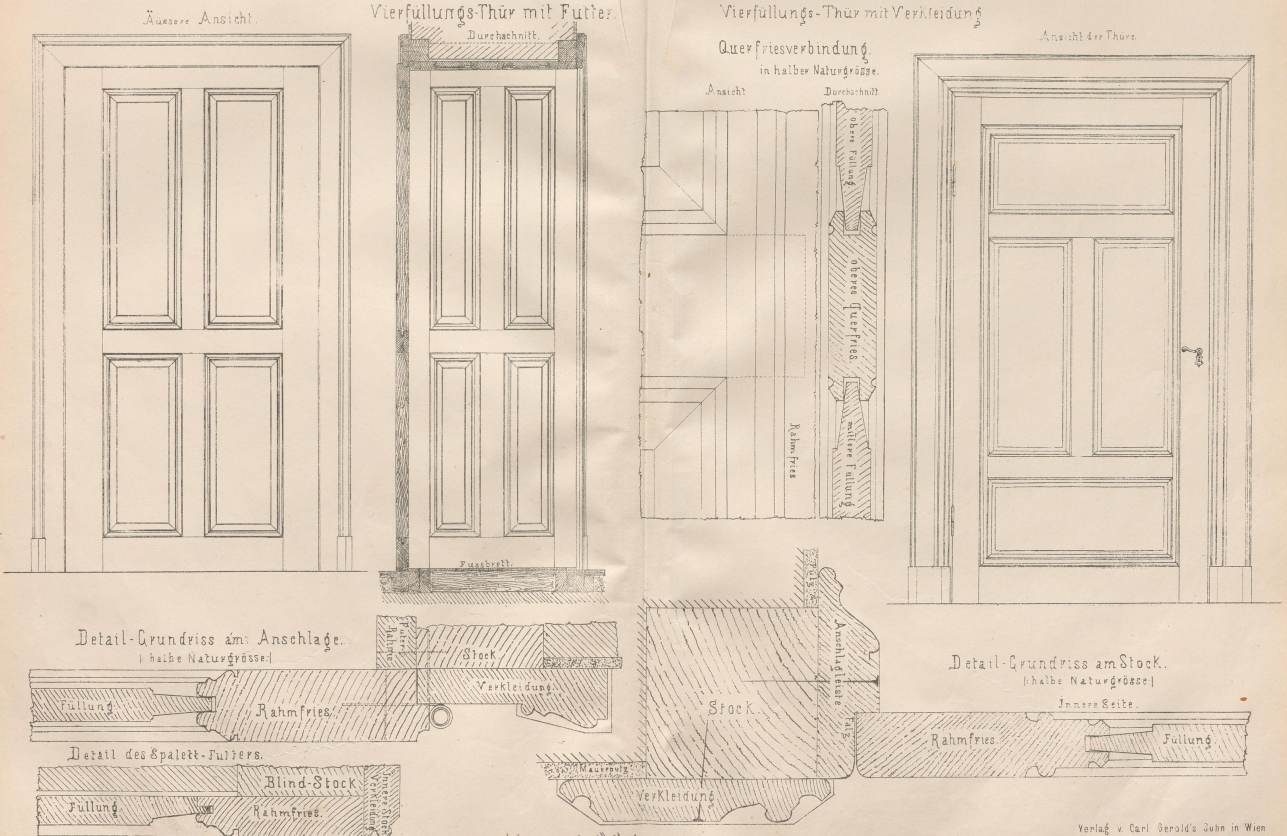 Äüssere Ansicht.
Vierfüllungs-Thür mit Futter.
Durchschnitt.
Fussbrett.
Vierfüllungs-Thür mit Verkleidung
Querfriesverbindung.
in halber Naturgrösse.
Ansicht
Durchschnitt.
obere Füllung
oberes Querfries.
mittlere Füllung
Rahmfries
Ansicht der Thüre.
Detail-Grundriss am Anschlage.
|: halbe Naturgrösse:|
Futter
Rahme
Stock
Verkleidung
Füllung
Rahmfries.
Detail des Spalett-Futters.
Blind-Stock
Füllung
Rahmfries.
Innere Stock
Verkleidung
Putz
Anschlagleiste
Stock.
Falz
Mauerputz
Verkleidung
Detail-Grundriss am Stock.
|: halbe Naturgrösse:|
Innere Seite.
Rahmfries.
Füllung
Verlag v. Carl Gerold's Sohn in Wien